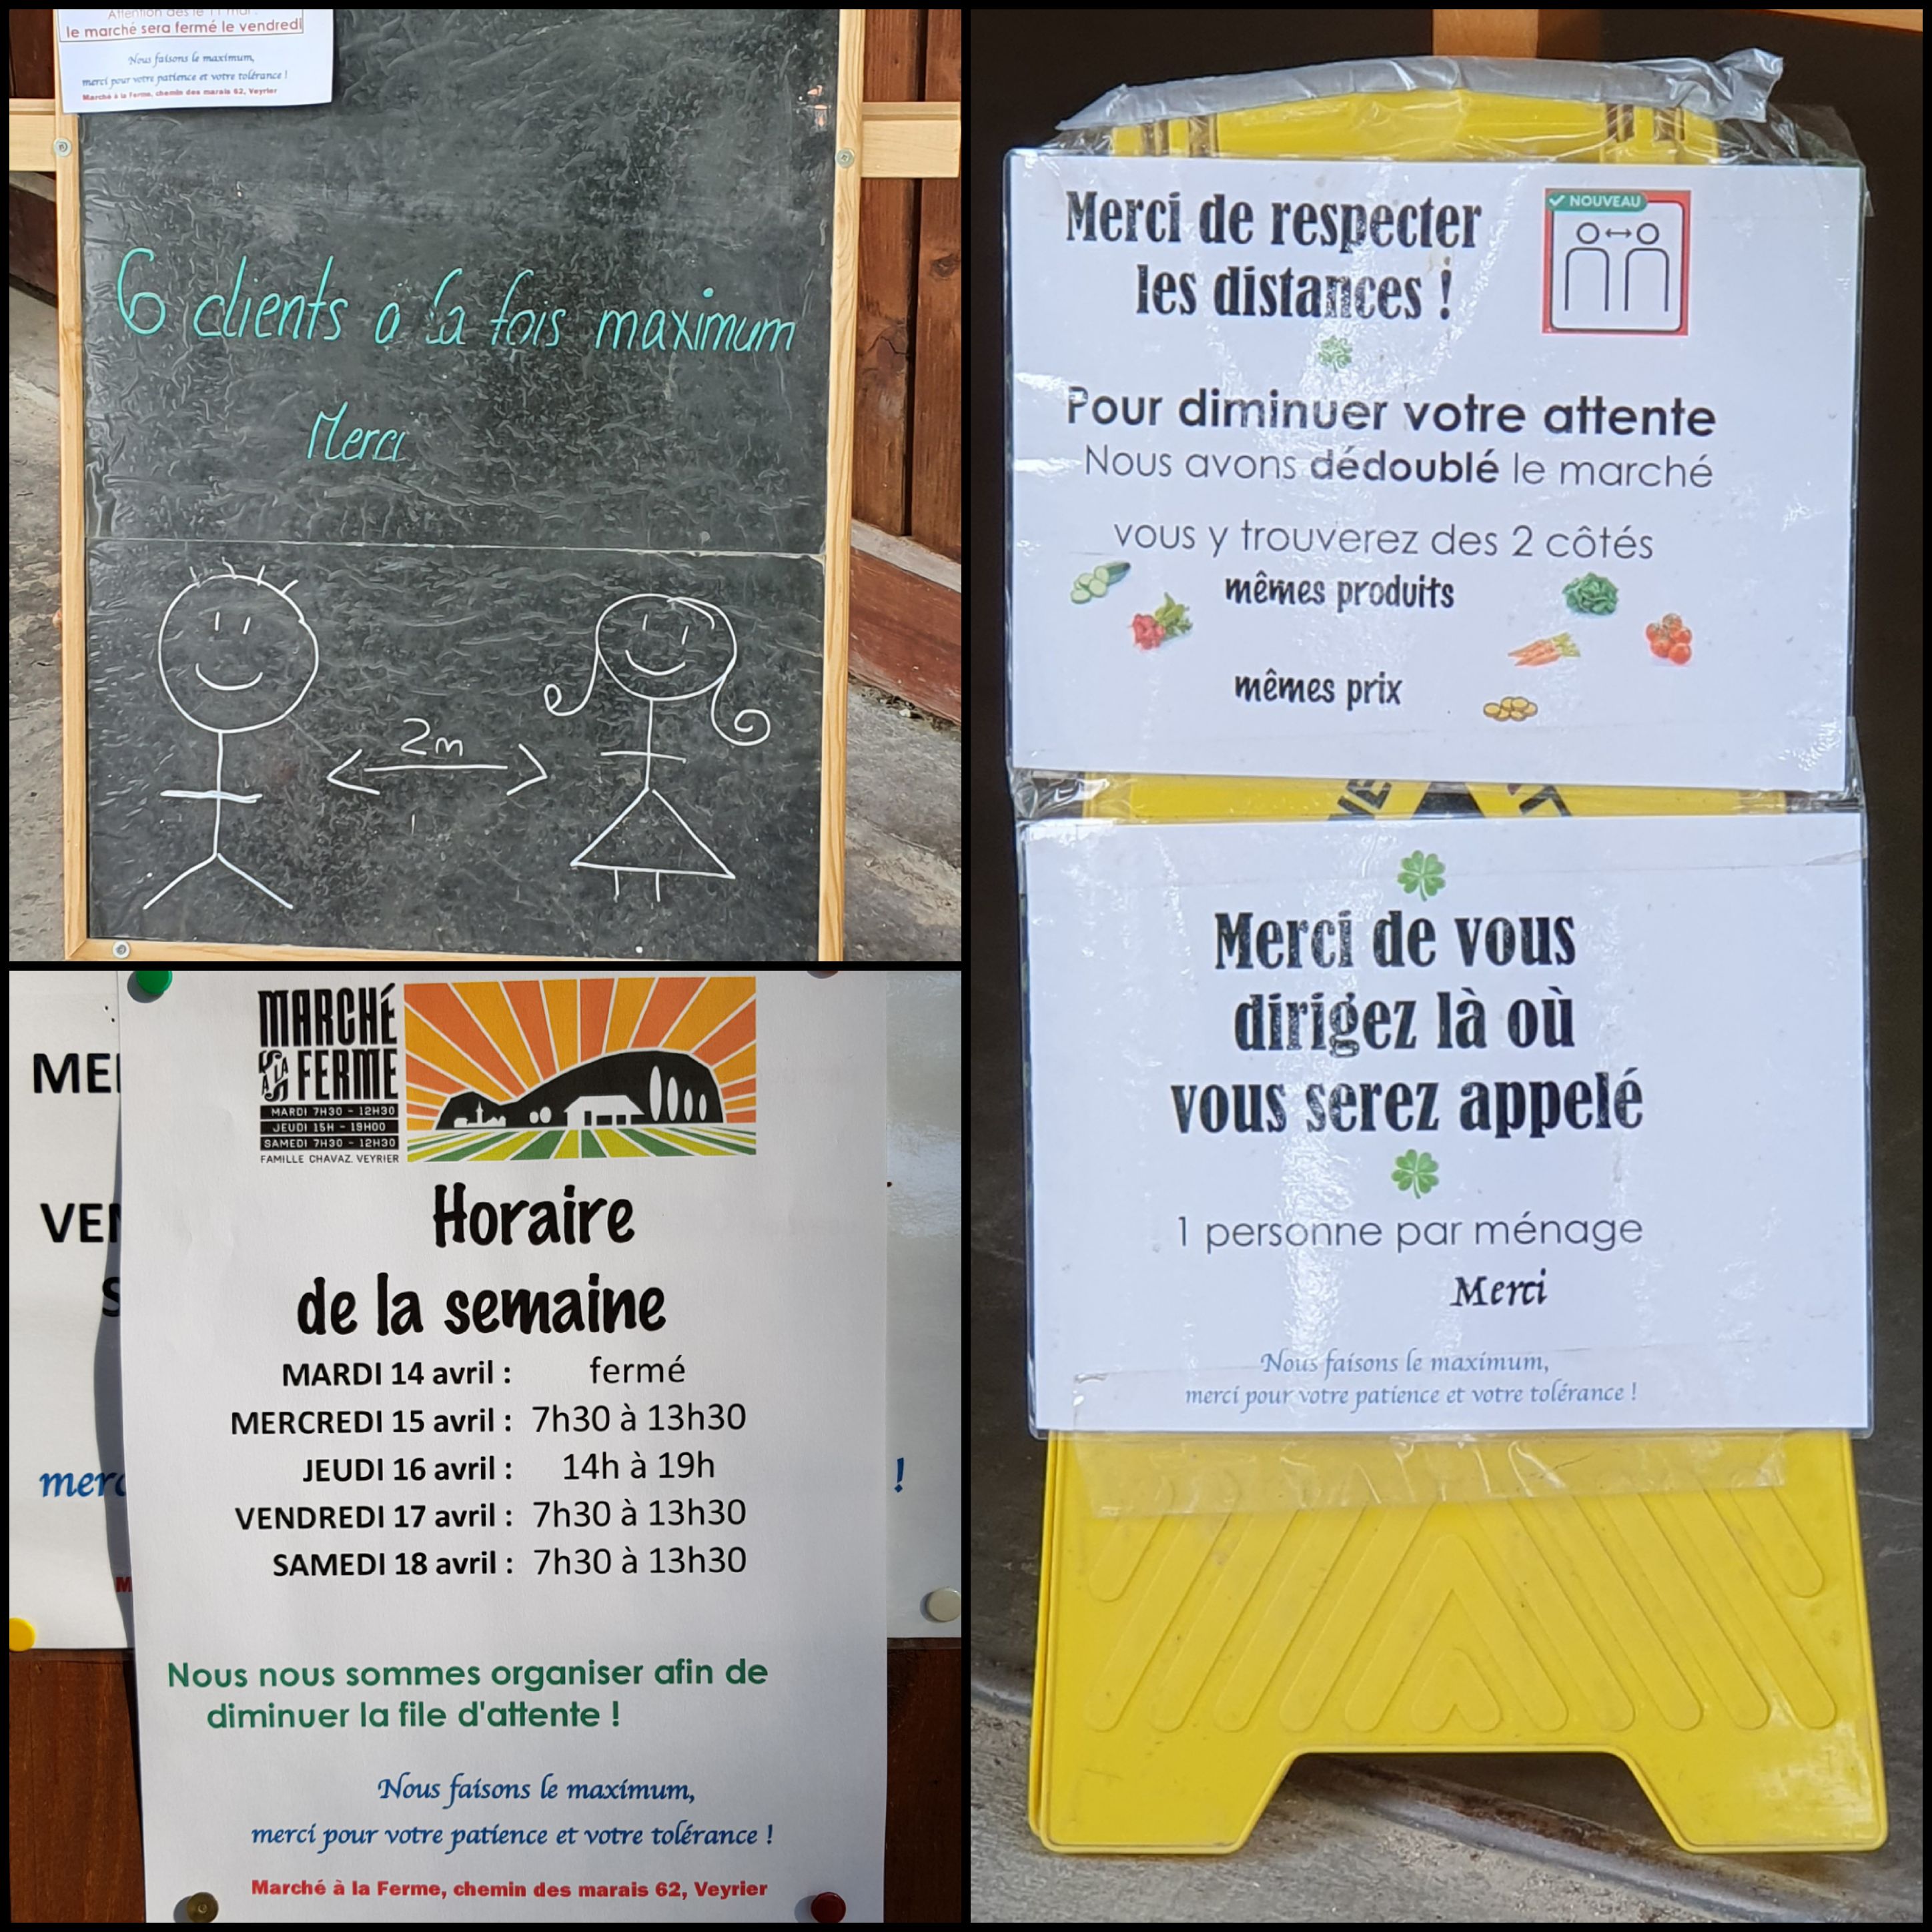 Attention dès le 11 mai
le marché sera fermé le vendredi
Nous faisons le maximum,
merci pour votre patience et votre tolérance !
Marché à la Ferme, chemin des marais 62, Veyrier
6 clients a la fois maximum
Merci
2m
MARCHÉ
À LA FERME
MARDI 7H30 - 12H30
JEUDI 15H - 19H00
SAMEDI 7H30 - 12H30
FAMILLE CHAVAZ. VEYRIER
Horaire
de la semaine
MARDI 14 avril : fermé
MERCREDI 15 avril : 7h30 à 13h30
JEUDI 16 avril : 14h à 19h
VENDREDI 17 avril : 7h30 à 13h30
SAMEDI 18 avril : 7h30 à 13h30
Nous nous sommes organiser afin de
diminuer la file d'attente !
Nous faisons le maximum,
merci pour votre patience et votre tolérance !
Marché à la Ferme, chemin des marais 62, Veyrier
Merci de respecter
les distances !
NOUVEAU
Pour diminuer votre attente
Nous avons dédoublé le marché
vous y trouverez des 2 côtés
mêmes produits
mêmes prix
Merci de vous
dirigez là où
vous serez appelé
1 personne par ménage
Merci
Nous faisons le maximum,
merci pour votre patience et votre tolérance !